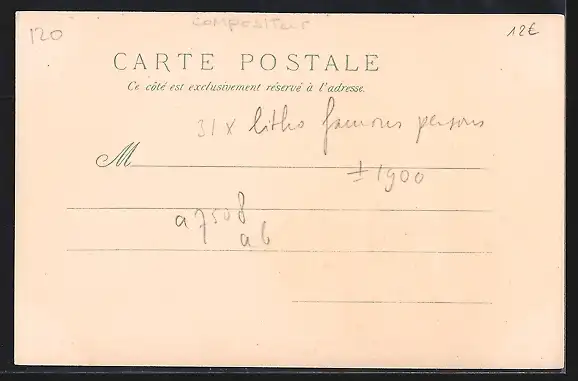 120
compositeur
12€
CARTE POSTALE
Ce côté est exclusivement réservé à l'adresse.
31 x litho famous persons
M
± 1900
a7508
ab